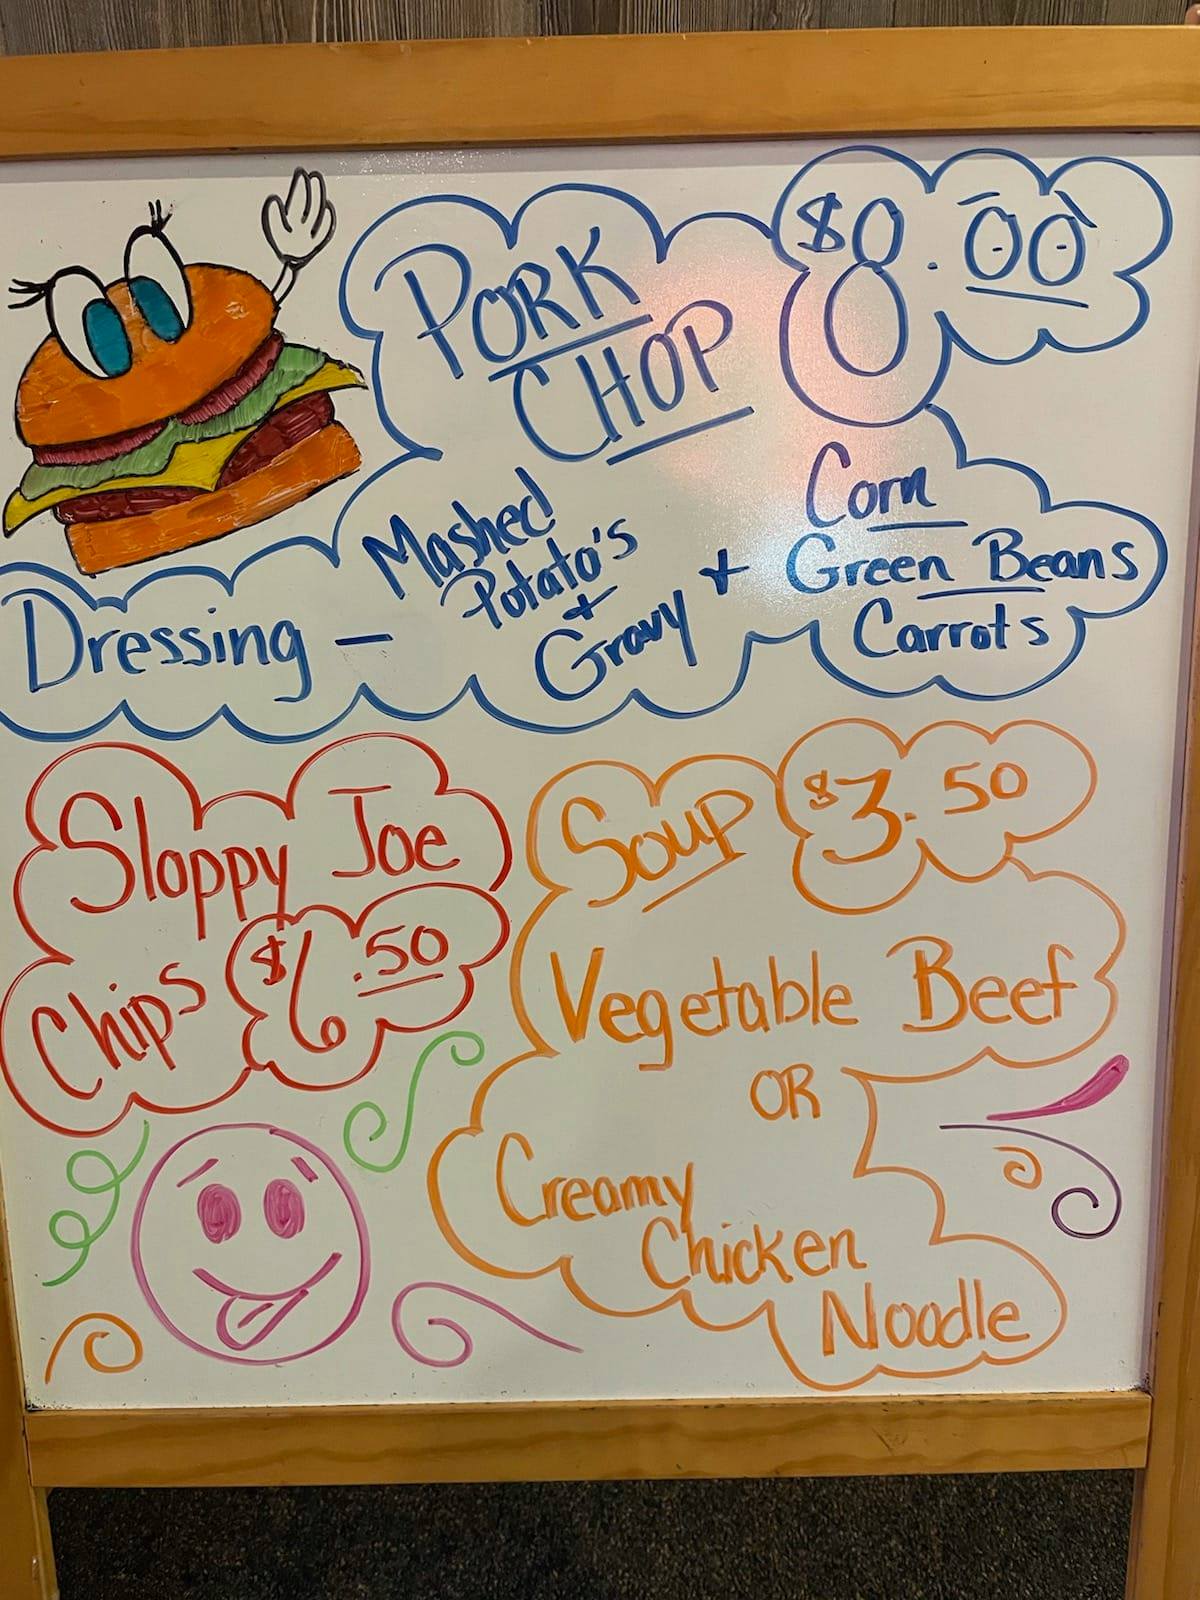 PORK
CHOP
$8.00
Dressing - Mashed
Potato's
+
Gravy
+ Corn
Green Beans
Carrots
Sloppy Joe
Chips $6.50
Soup $3.50
Vegetable Beef
OR
Creamy
Chicken
Noodle